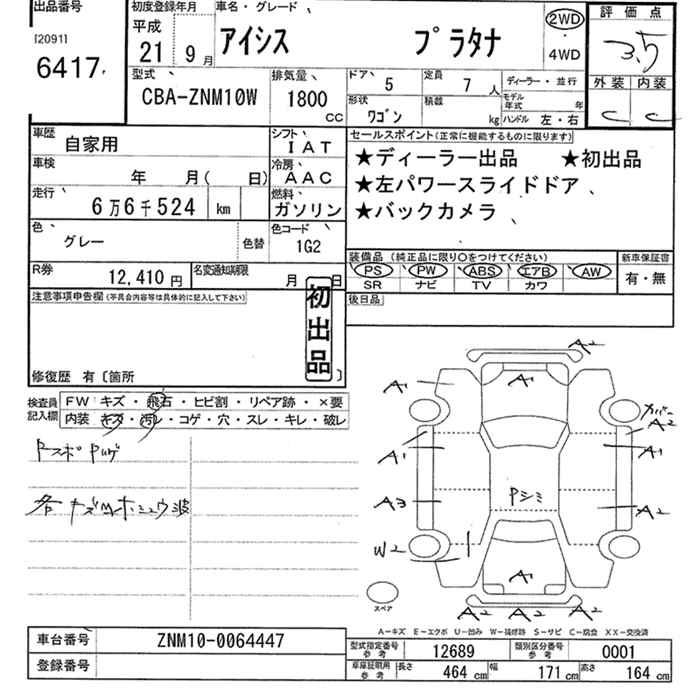 出品番号 初度登録年月 車名・グレード 評価点
[2091] 平成
6417 21年 9月 アイシス プラタナ 2WD ・ 4WD 3.5
型式 排気量 ドア 5 定員 7人 ディーラー・並行 外装 内装
CBA-ZNM10W 1800cc 形状 ワゴン 積載 kg モデル年式 年 ハンドル 左・右 C C
車歴 自家用 シフト IAT セールスポイント(正常に機能するものに限ります)
車検 年 月( 日) 冷房 AAC ★ディーラー出品 ★初出品
走行 6万6千524 km 燃料 ガソリン ★左パワースライドドア
★バックカメラ
色 グレー 色替 色コード 1G2
装備品(純正品に限り○をつけてください) 新車保証書
R券 12,410円 名変通知期限 月 日 PS PW ABS エアB AW 有・無
SR ナビ TV カワ
注意事項申告欄(不具合内容等は具体的に記入して下さい) 初出品 後日品
修復歴 有〔箇所 〕
検査員記入欄 FW キズ・飛石・ヒビ割・リペア跡・×要
内装 キズ・汚レ・コゲ・穴・スレ・キレ・破レ
A2
A1 A1
カバー A2
A1 A1
A3 Pシミ A2
W2
A1
スペア A2 A2 A2
A-キズ E-エクボ U-凹み W-補修跡 S-サビ C-腐食 XX-交換済
車台番号 ZNM10-0064447 型式指定番号 参考 12689 類別区分番号 参考 0001
登録番号 車庫証明用 参考 長さ 464cm 幅 171cm 高さ 164cm